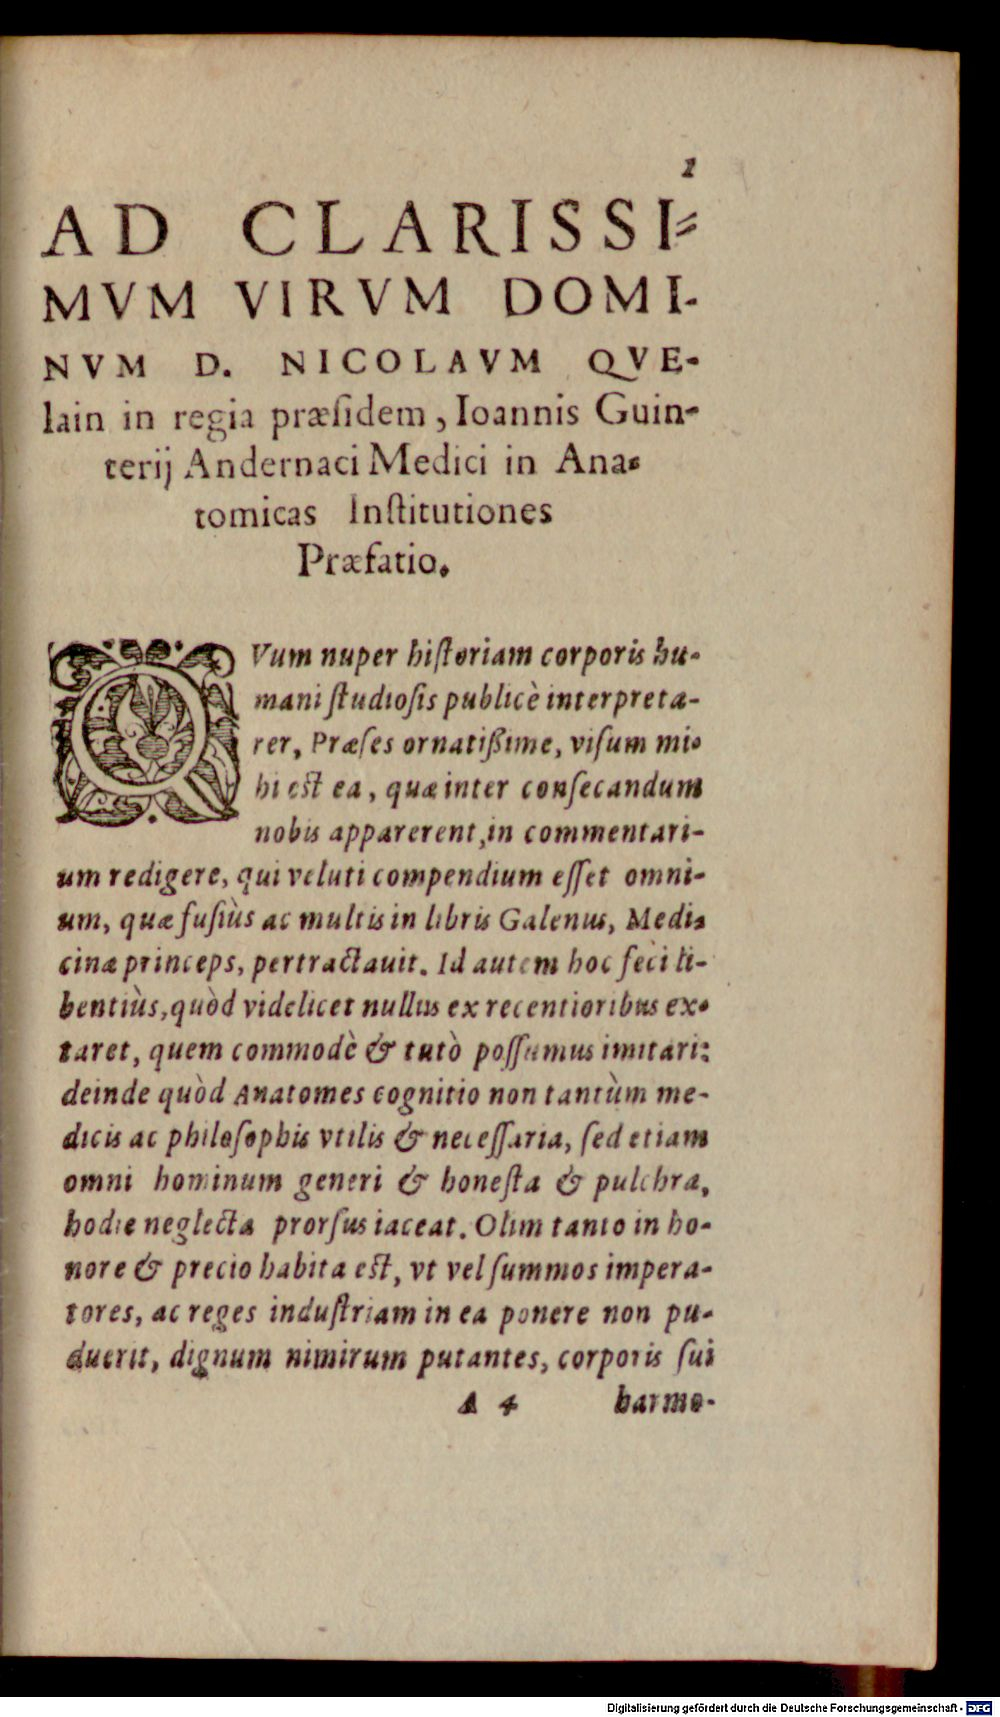 1
AD CLARISSI-
MVM VIRVM DOMI-
NVM D. NICOLAVM QVE-
lain in regia præsidem, Ioannis Guin-
terij Andernaci Medici in Ana-
tomicas Institutiones
Præfatio.
QVum nuper historiam corporis hu-
mani studiosis publicè interpreta-
rer, Præses ornatißime, visum mi-
hi est ea, quæ inter consecandum
nobis apparerent, in commentari-
um redigere, qui veluti compendium esset omni-
um, quæ fusiùs ac multis in libris Galenus, Medi-
cinæ princeps, pertractauit. Id autem hoc feci li-
bentiùs, quòd videlicet nullus ex recentioribus ex-
taret, quem commodè & tutò possumus imitari:
deinde quòd Anatomes cognitio non tantùm me-
dicis ac philosophis vtilis & necessaria, sed etiam
omni hominum generi & honesta & pulchra,
hodie neglecta prorsus iaceat. Olim tanto in ho-
nore & precio habita est, vt vel summos impera-
tores, ac reges industriam in ea ponere non pu-
duerit, dignum nimirum putantes, corporis sui
A 4 harmo-
Digitalisierung gefördert durch die Deutsche Forschungsgemeinschaft - DFG